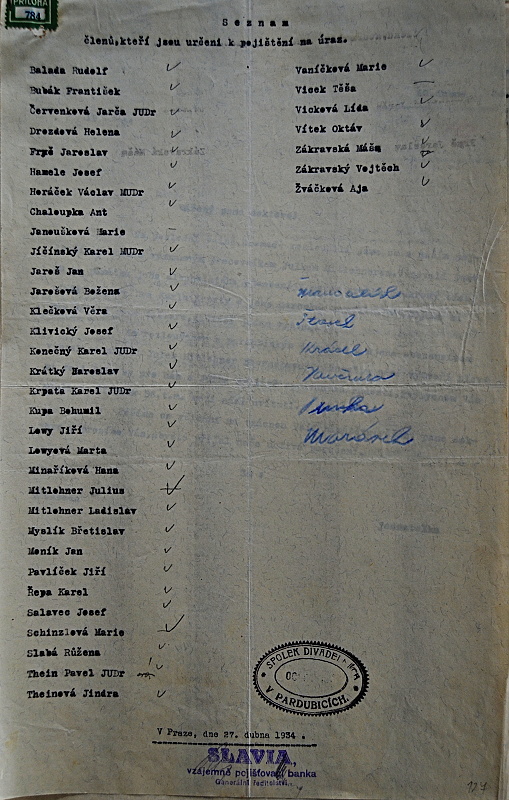 PŘÍLOHA
784
Seznam
členů,kteří jsou určeni k pojištění na úraz.
Balada Rudolf
Bubák František
Červenková Jarča JUDr
Drozdová Helena
Frpš Jaroslav
Hamele Josef
Horáček Václav MUDr
Chaloupka Ant
Janoušková Marie
Jičínský Karel MUDr
Jareš Jan
Jarešová Božena
Klečková Věra
Klivický Josef
Konečný Karel JUDr
Krátký Jaroslav
Krpata Karel JUDr
Kupa Bohumil
Lowy Jiří
Lowyová Marta
Minaříková Hana
Mitlohner Julius
Mitlohner Ladislav
Myslík Břetislav
Moník Jan
Pavlíček Jiří
Řepa Karel
Salavec Josef
Schinzlová Marie
Slabá Růžena
Thein Pavel JUDr
Theinová Jindra
Vaníčková Marie
Vicek Těša
Vicková Lída
Vítek Oktáv
Zákravská Máša
Zákravský Vojtěch
Žváčková Aja
SPOLEK DIVADEL
V PARDUBICÍCH.
V Praze, dne 27. dubna 1934 .
SLAVIA,
vzájemná pojišťovací banka
Generální ředitelství.
127